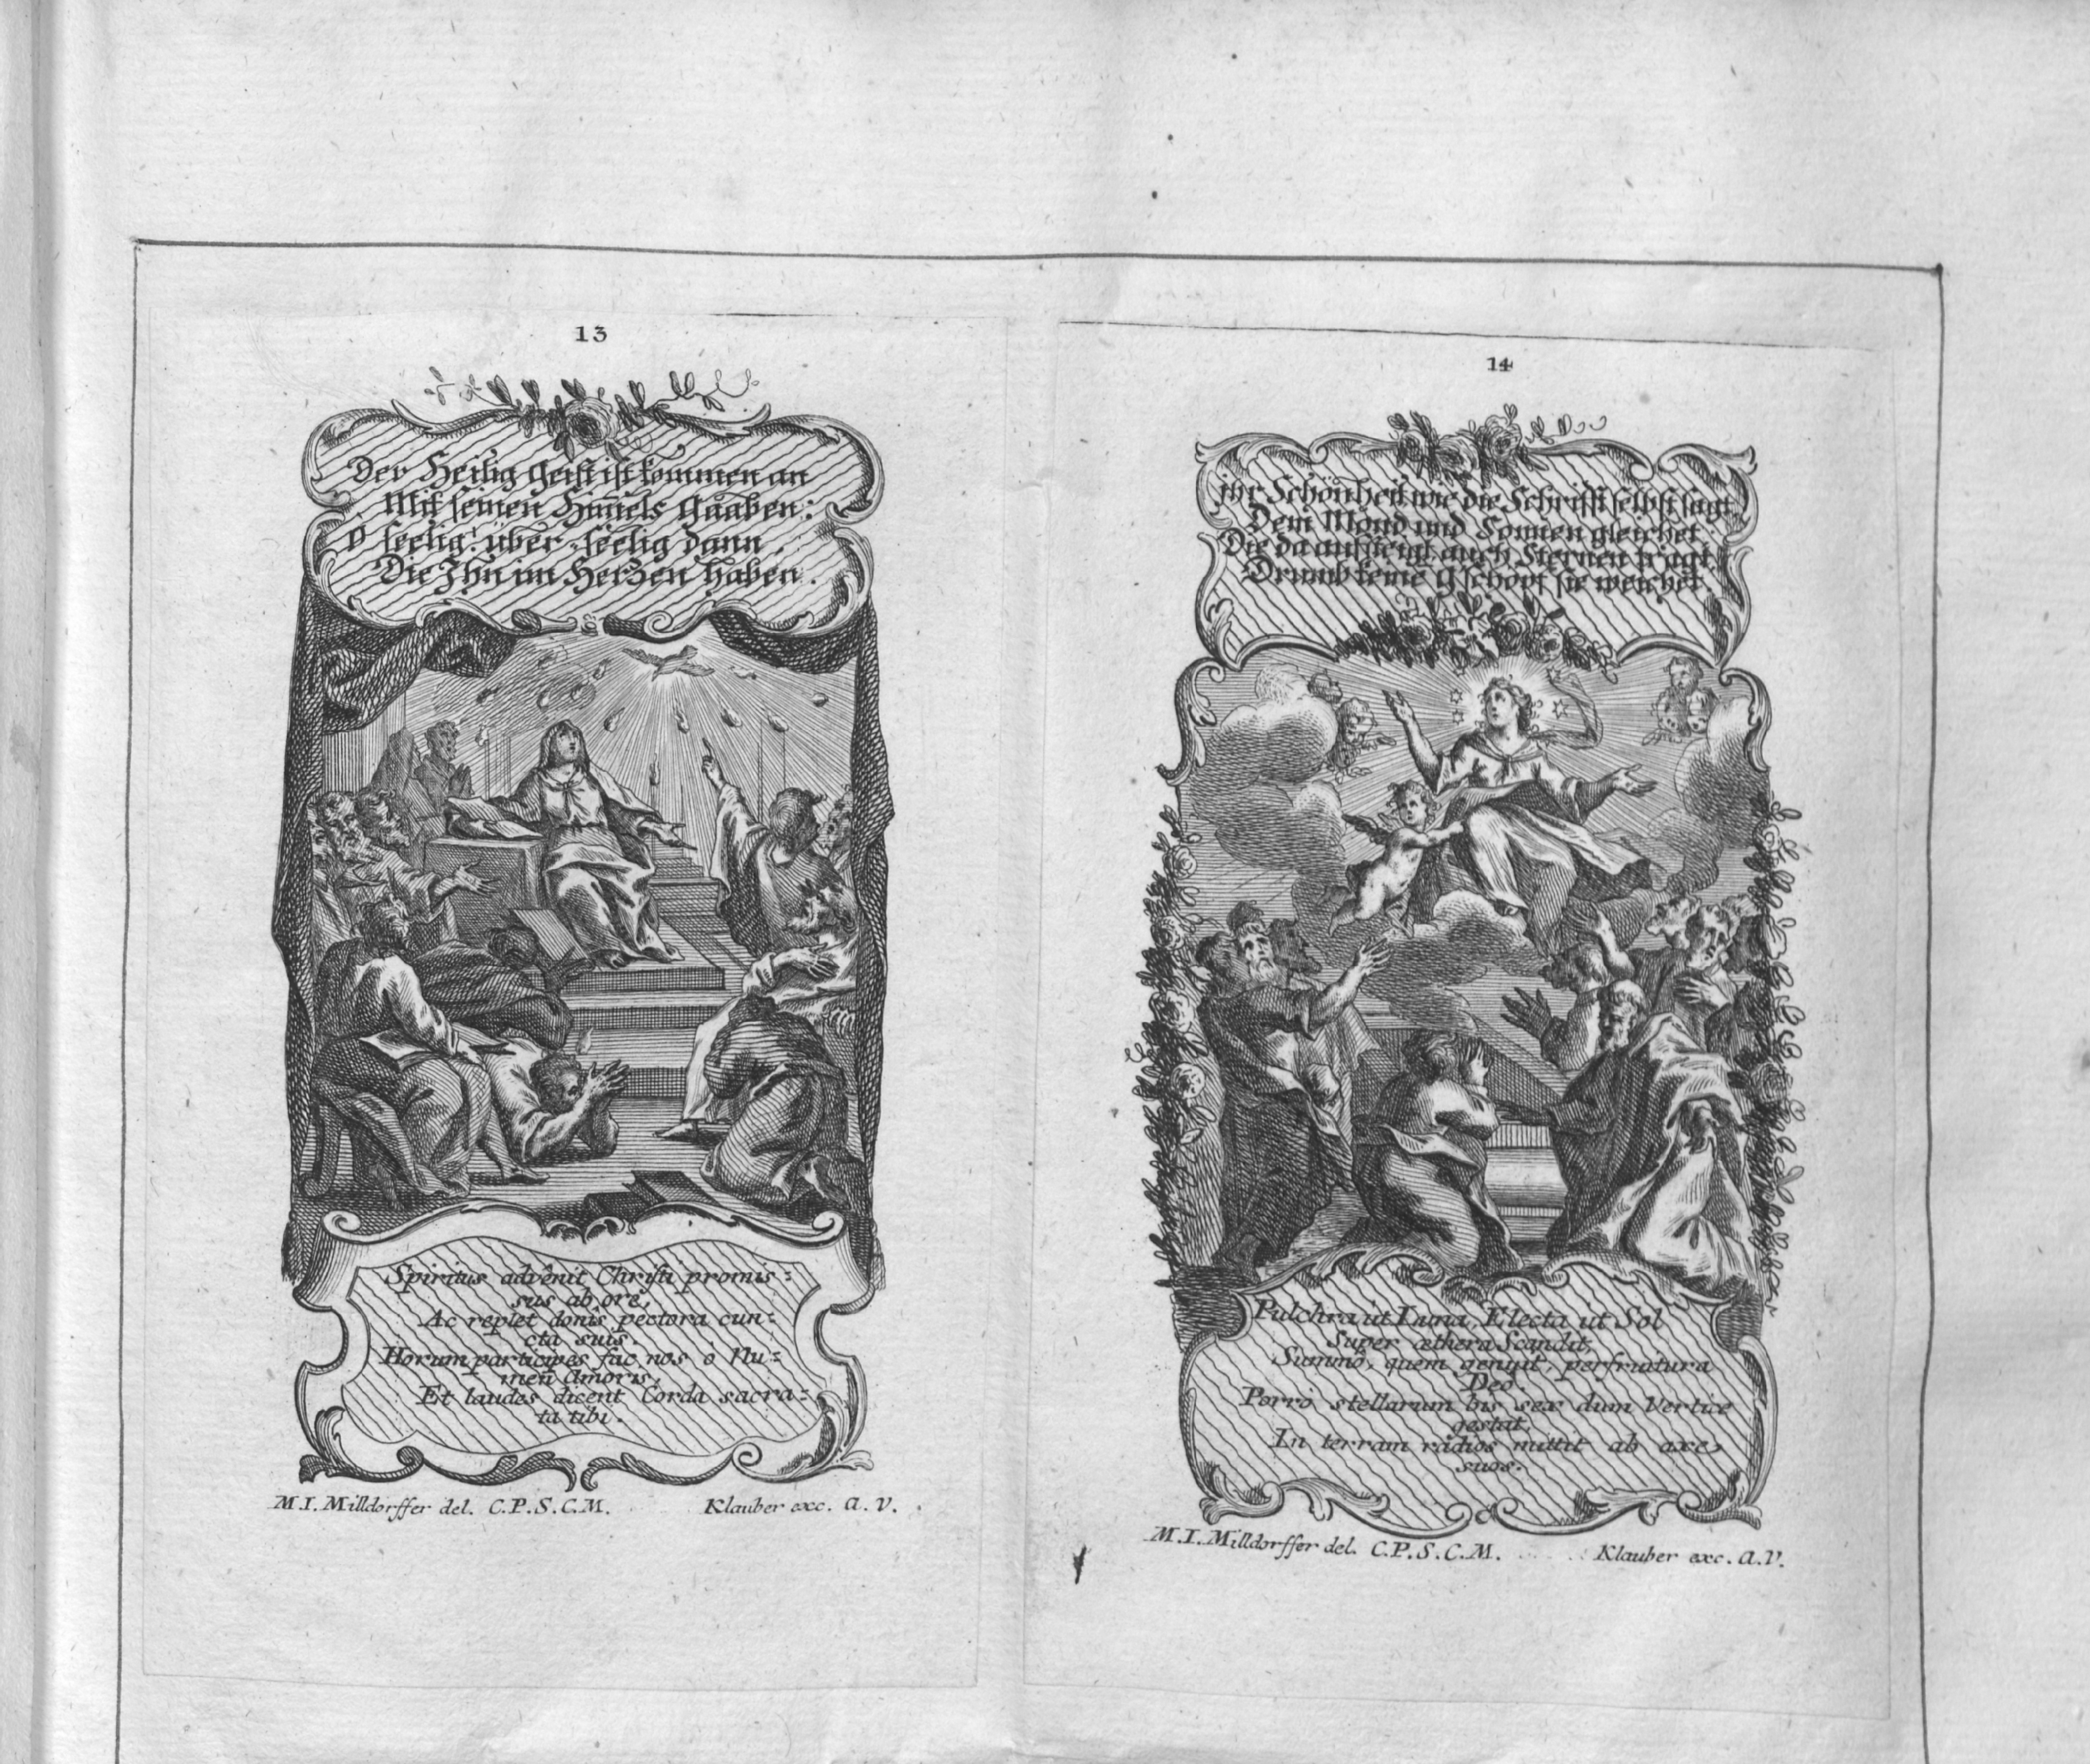 13
Der Heilig Geist ist kommen an
Mit seinen Him̄els Gaaben:
O seelig! über-seelig dann,
Die Ihn im Herzen haben.
Spiritus advênit Christi promis:
sus ab ore,
Ac replet donis pectora cun:
cta suis.
Horum participes fac nos ô Nu:
men Amoris,
Et laudes dicent Corda sacra:
ta tibi.
M.I. Milldorffer del. C.P.S.C.M. Klauber exc. A.V.
14
ihr Schönheit wie die Schrifft selbst sagt
Dem Mond und Sonnen gleichet.
Die da aufsteigt auch Sternen tragt
Drumb keine gschöpf sie weichet.
Pulchra ut Luna, Electa ut Sol
Super æthera Scandit,
Summô, quem genuit, perfruitura
Deo.
Porro stellarum bis sex dum Vertice
gestat,
In terram radios mittit ab axe
suos.
M.I. Milldorffer del. C.P.S.C.M. Klauber exc. A.V.